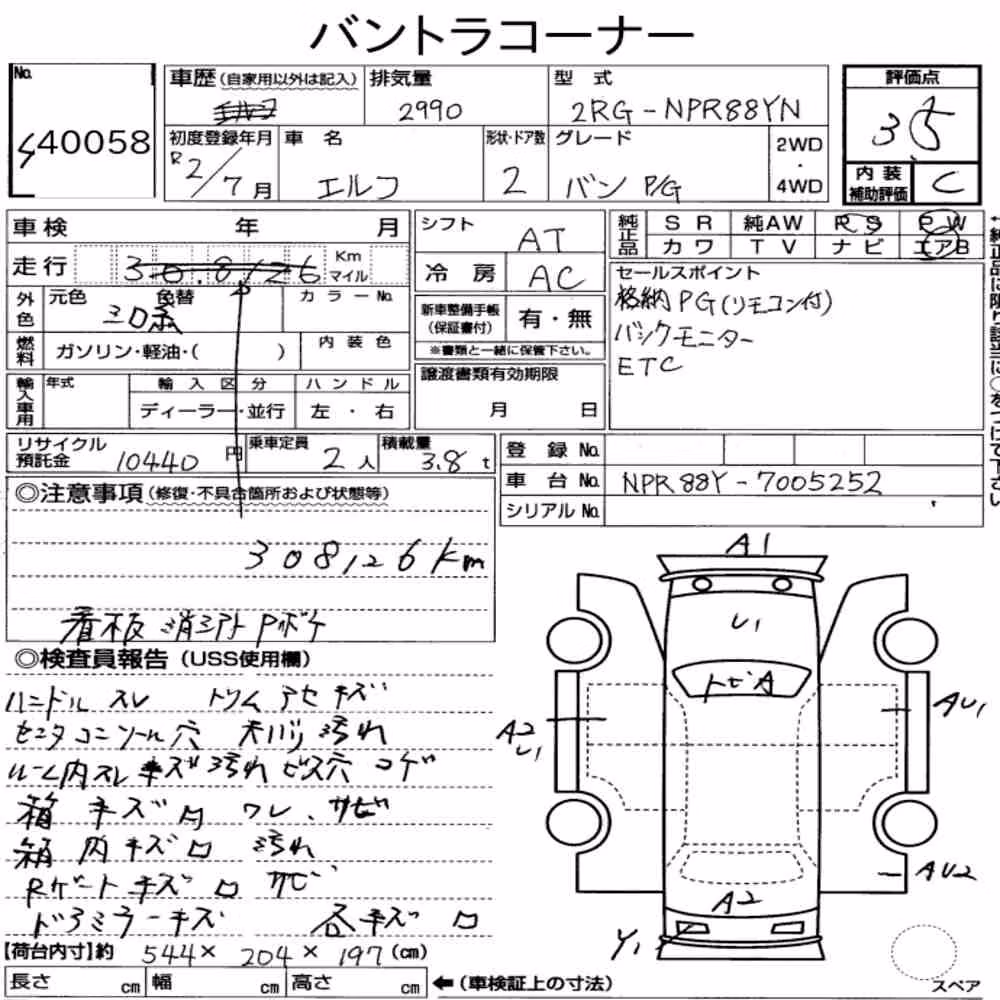 バントラコーナー
No. 40058
車歴 (自家用以外は記入)
排気量 2990
型式 2RG-NPR88YN
評価点 3.5
初度登録年月 R2/7月
車名 エルフ
形状・ドア数 2
グレード バン P/G
2WD・4WD
内装補助評価 C
車検 年 月
走行 308126 Km マイル
シフト AT
冷房 AC
純正品 SR 純AW PS PW
カワ TV ナビ エアB
←純正品に限り該当に○をつけて下さい
外色 元色 色替 カラーNo.
燃料 ガソリン・軽油・( ) 内装色
新車整備手帳(保証書付) 有・無
※書類と一緒に保管下さい。
セールスポイント
格納PG(リモコン付)
バックモニター
ETC
輸入車用 年式 輸入区分 ハンドル
ディーラー・並行 左・右
譲渡書類有効期限
月 日
リサイクル預託金 10440円
乗車定員 2人
積載量 3.8t
登録No.
車台No. NPR88Y-7005252
シリアルNo.
◎注意事項(修復・不具合箇所および状態等)
308126km
看板消シアト Pボケ
◎検査員報告(USS使用欄)
ハンドルスレ トリムアセキズ
センタコンソール穴 木ハリ汚れ
ルーム内スレキズ汚れビス穴コゲ
箱キズ凹ワレ、サビ
箱内キズ凹 汚れ
Rゲートキズ凹サビ
ドアミラーキズ 各キズ凹
【荷台内寸】約 544×204×197(cm)
長さ cm 幅 cm 高さ cm ←(車検証上の寸法)
A1
U1
トビA
A2
U1
AU1
AU2
A2
Y1
スペア